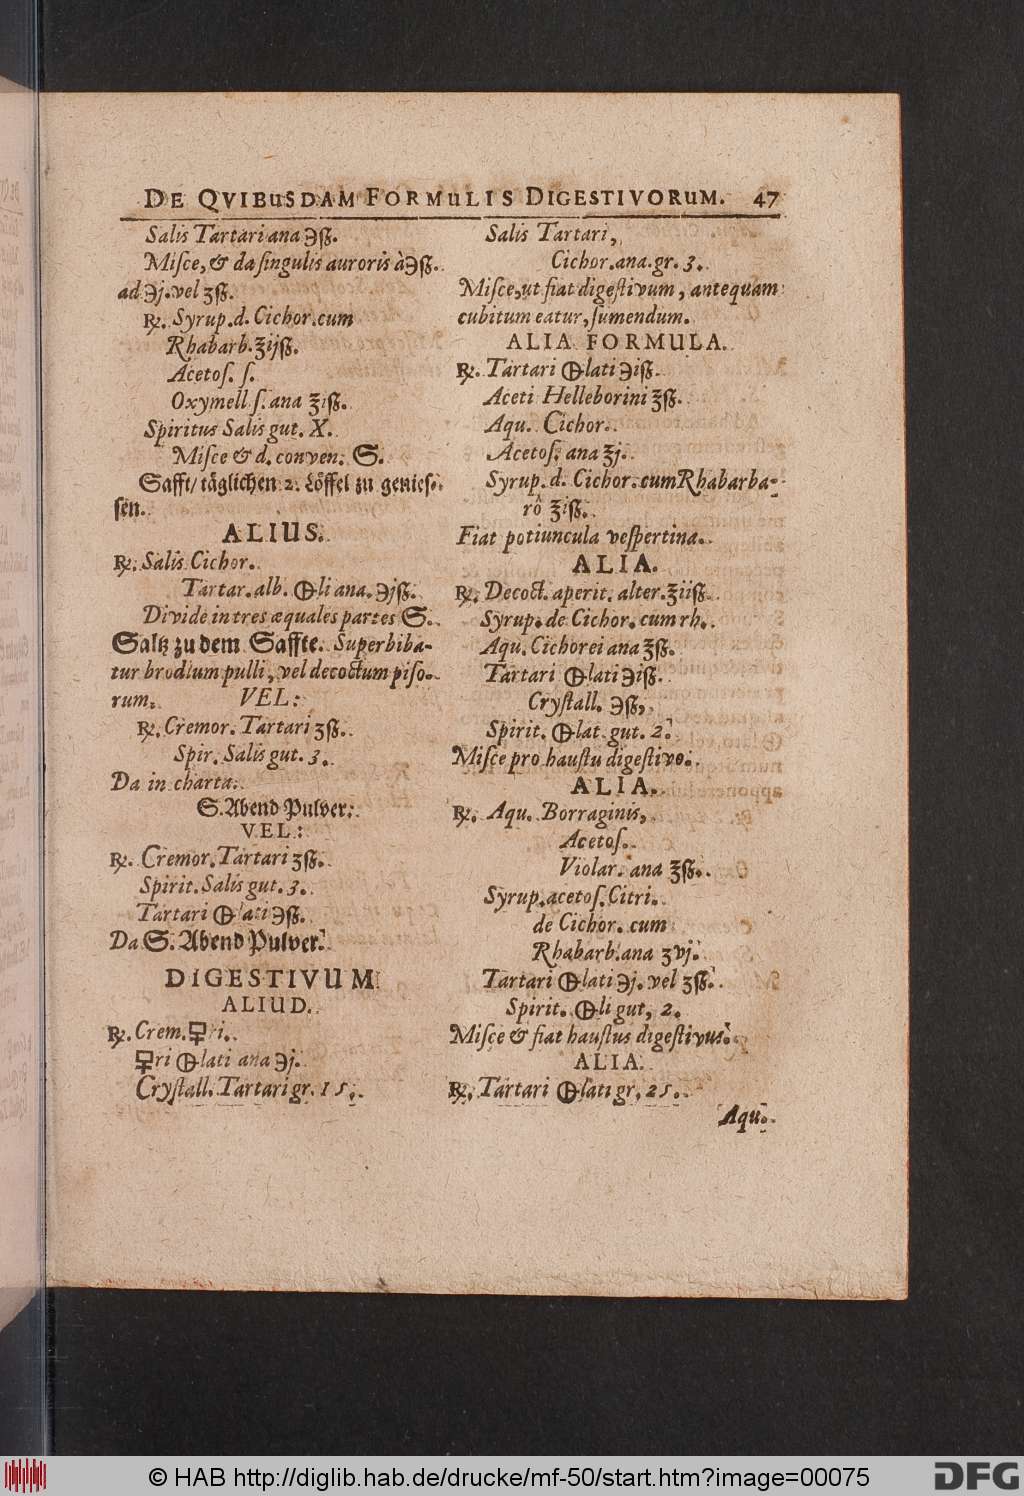 DE QVIBUSDAM FORMULIS DIGESTIVORUM. 47
Salis Tartari ana ℈ß.
Miſce, & da ſingulis auroris à ℈ß.
ad ℈j. vel ʒß.
℞. Syrup. d. Cichor. cum
Rhabarb. ℥ijß.
Acetoſ. ſ.
Oxymell ſ. ana ℥iß.
Spiritus Salis gut. X.
Miſce & d. conven. S.
Safft/ täglichen 2. Löffel zu genieſ-
ſen.
ALIUS.
℞. Salis Cichor.
Tartar. alb. 🜨li ana. ℈jß.
Divide in tres æquales partes S.
Saltz zu dem Saffte. Superbiba-
tur brodium pulli, vel decoctum piſo-
rum. VEL:
℞. Cremor. Tartari ʒß.
Spir. Salis gut. 3.
Da in charta.
S. Abend Pulver.
VEL:
℞. Cremor. Tartari ʒß.
Spirit. Salis gut. 3.
Tartari 🜨lati ℈ß.
Da S. Abend Pulver.
DIGESTIVUM
ALIUD.
℞. Crem. 🜿ri.
🜿ri 🜨lati ana ℈j.
Cryſtall. Tartari gr. 15.
Salis Tartari,
Cichor. ana. gr. 3.
Miſce, ut fiat digeſtivum, antequam
cubitum eatur, ſumendum.
ALIA FORMULA.
℞. Tartari 🜨lati ℈iß.
Aceti Helleborini ℥ß.
Aqu. Cichor.
Acetoſ. ana ℥j.
Syrup. d. Cichor. cum Rhabarba-
rô ℥iß.
Fiat potiuncula veſpertina.
ALIA.
℞. Decoct. aperit. alter. ℥iiß.
Syrup. de Cichor. cum rh.
Aqu. Cichorei ana ℥ß.
Tartari 🜨lati ℈iß.
Cryſtall. ℈ß,
Spirit. 🜨lat. gut. 2.
Miſce pro hauſtu digeſtivo.
ALIA.
℞. Aqu. Borraginis,
Acetoſ.
Violar. ana ℥ß.
Syrup. acetoſ. Citri.
de Cichor. cum
Rhabarb. ana ʒvj.
Tartari 🜨lati ℈j. vel ʒß.
Spirit. 🜨li gut, 2.
Miſce & fiat hauſtus digeſtivus.
ALIA.
℞. Tartari 🜨lati gr. 25.
Aqu.
© HAB http://diglib.hab.de/drucke/mf-50/start.htm?image=00075
DFG